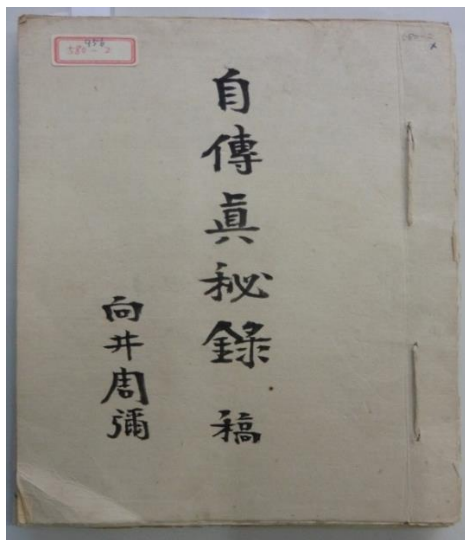 自傳眞秘錄 稿
向井周彌